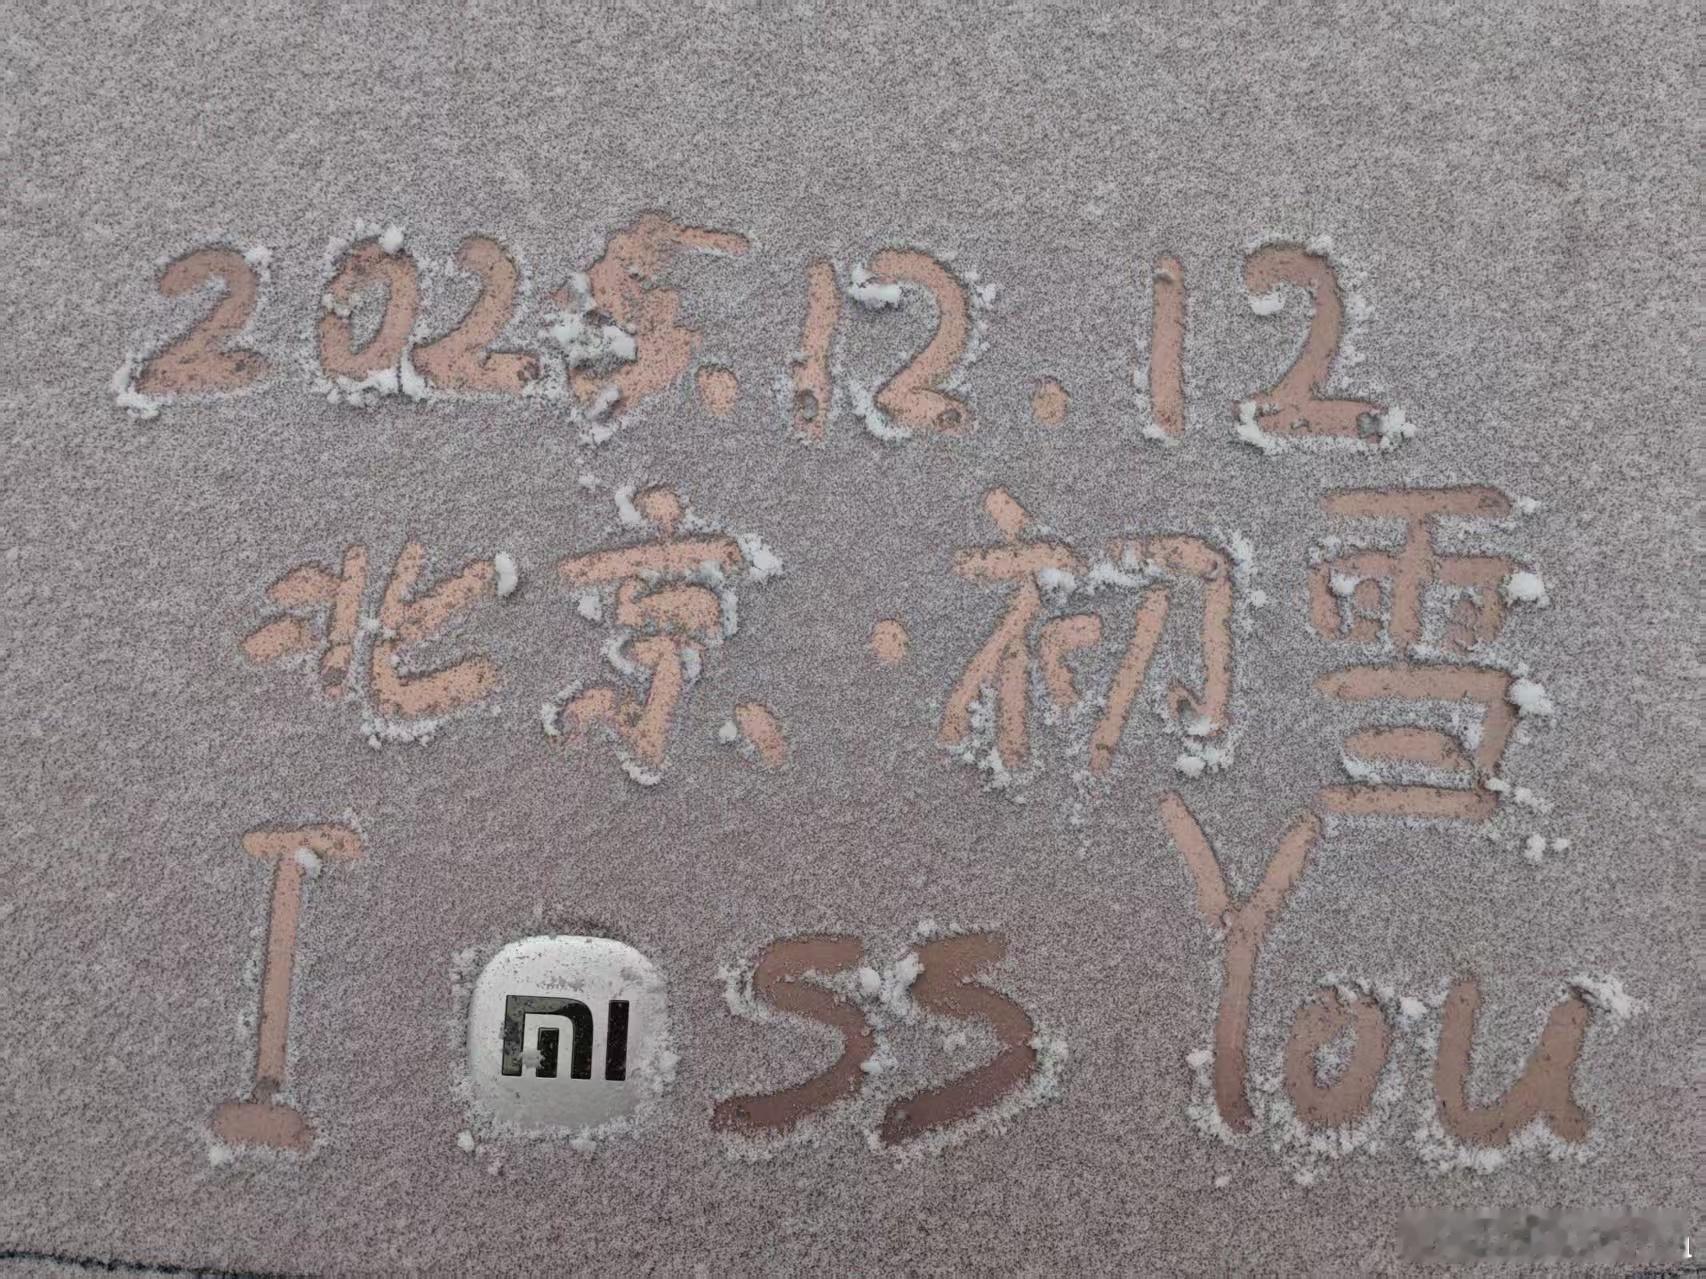 2025.12.12
北京·初雪
I mi ss You